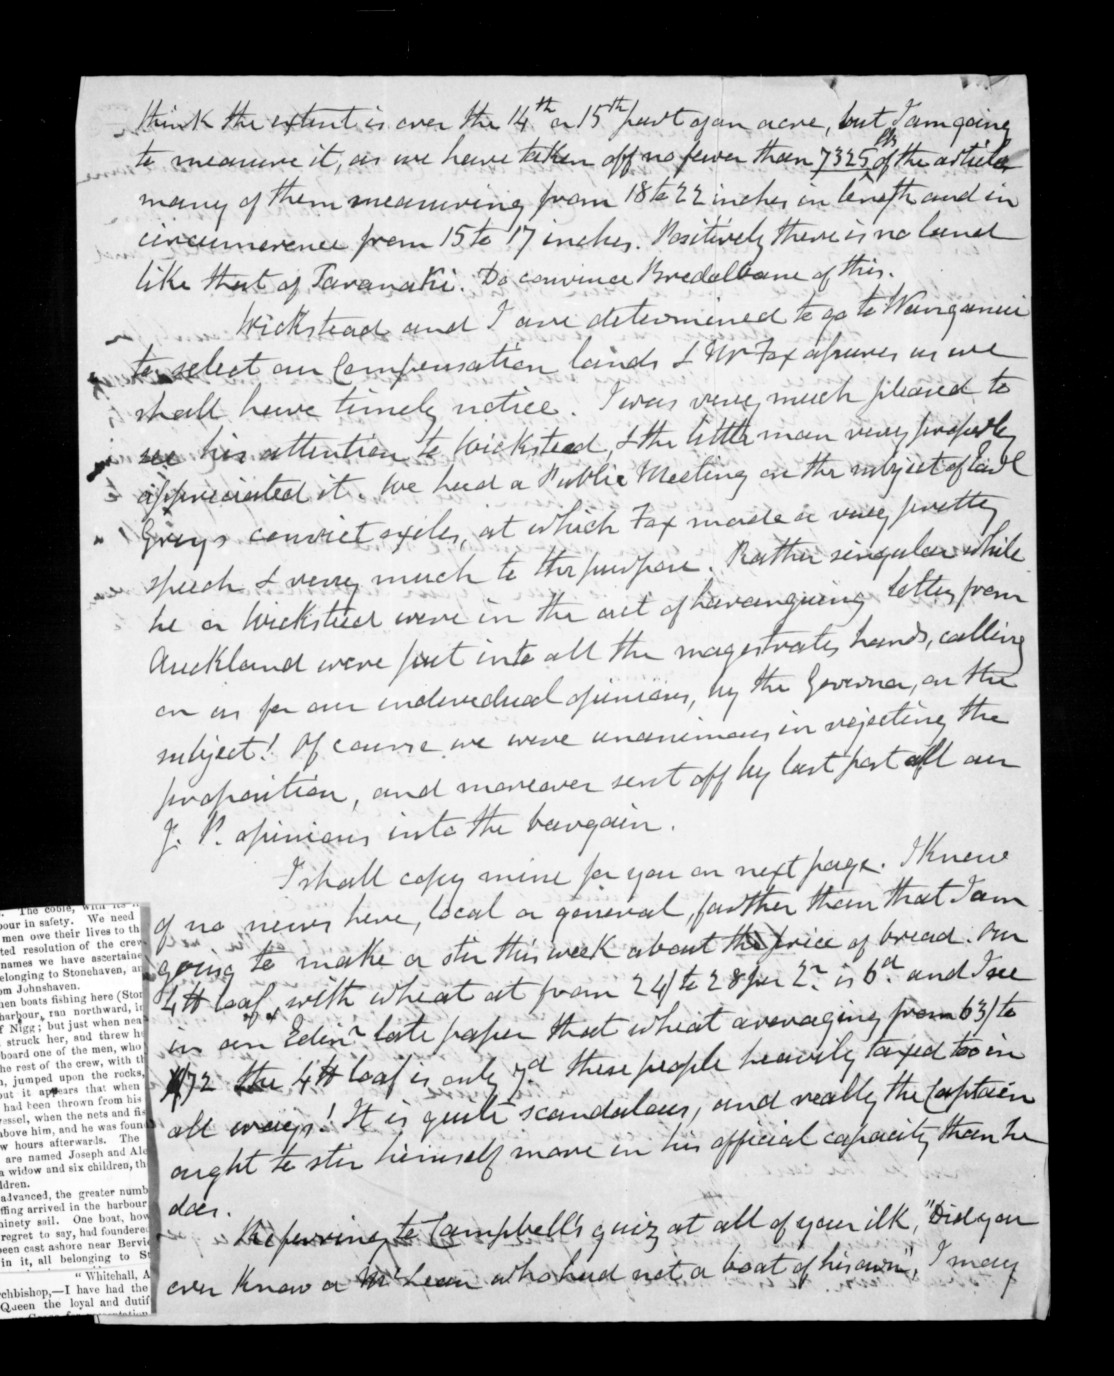 think the extent is over the 14th or 15th part of an acre, but I am going
to measure it, as we have taken off no fewer than 7325 lbs of the article
many of them measuring from 18 to 22 inches in length and in
circumerence from 15 to 17 inches. Positively there is no land
like that of Taranaki. Do convince Bredalbane of this.
Wickstead and I are determined to go to Wanganui
to select our Compensation lands & Mr Fox assures us we
shall have timely notice. I was very much pleased to
see his attention to Wicksteed, & the little man very properly
appreciated it. We had a Public Meeting on the subject of Earl
Grey's convict exiles, at which Fox made a very pretty
speech & very much to the purpose. Rather singular while
he or Wicksteed were in the act of haranguing letters from
Auckland were put into all the magistrates hands, calling
on us for our individual opinions, by the Governor, on the
subject! Of course we were unanimous in rejecting the
proposition, and moreover sent off by last post all our
J. P. opinions into the bargain.
I shall copy mine for you on next page. I know
of no news here, local or general, farther than that I am
going to make a stir this week about the price of bread. Our
4 lb loaf, with wheat at from 24/ to 28 per Qr is 6d and I see
in an Edinr late paper that wheat averaging from 63/ to
72 the 4 lb loaf is only 7d these people heavily taxed too in
all ways! It is quite scandalous, and really the Captain
ought to stir himself more in his official capacity than he
does.
Referring to Campbell's quiz at all of your ilk, "Did you
ever know a McLean who had not a boat of his own", I may
The coble, with its
our in safety. We need
men owe their lives to th
ted resolution of the crew
names we have ascertaine
elonging to Stonehaven, an
om Johnshaven.
en boats fishing here (Sto
harbour, ran northward, i
f Nigg; but just when nea
struck her, and threw h
board one of the men, who
he rest of the crew, with th
, jumped upon the rocks,
ut it appears that when
had been thrown from his
essel, when the nets and fis
above him, and he was foun
w hours afterwards. The
are named Joseph and Ale
a widow and six children, th
ldren.
advanced, the greater numb
ffing arrived in the harbour
ninety sail. One boat, how
regret to say, had foundere
een cast ashore near Bervi
in it, all belonging to St
"Whitehall, A
rchbishop,—I have had the
Queen the loyal and dutif